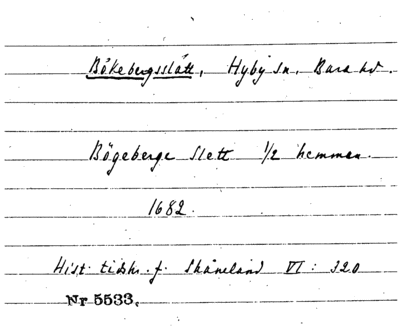 Bökebergsslätt, Hyby sn. Bara hd.
Bögeberge Slett 1/2 hemman.
1682.
Hist. tidskr. f. Skåneland VI: 320
Nr 5533.